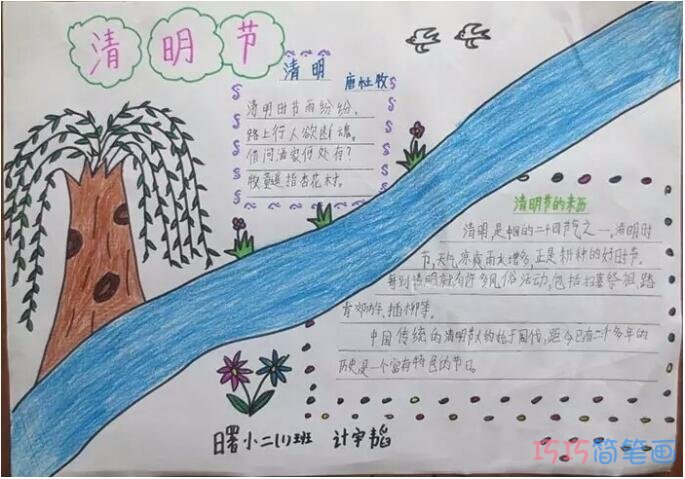 清明节
清明 唐 杜牧
清明时节雨纷纷,
路上行人欲断魂。
借问酒家何处有?
牧童遥指杏花村。
清明节的来历
清明,是中国的二十四节气之一。清明时
节,天气 雨水增多,正是耕种的好时节。
每到清明就有许多风俗活动,包括扫墓祭祖、踏
青郊游、插柳等。
中国传统的清明节大约始于周代,距今已有二千多年的
历史是一个富有特色的节日。
日署小二(1)班 计宇韬
巧巧简笔画